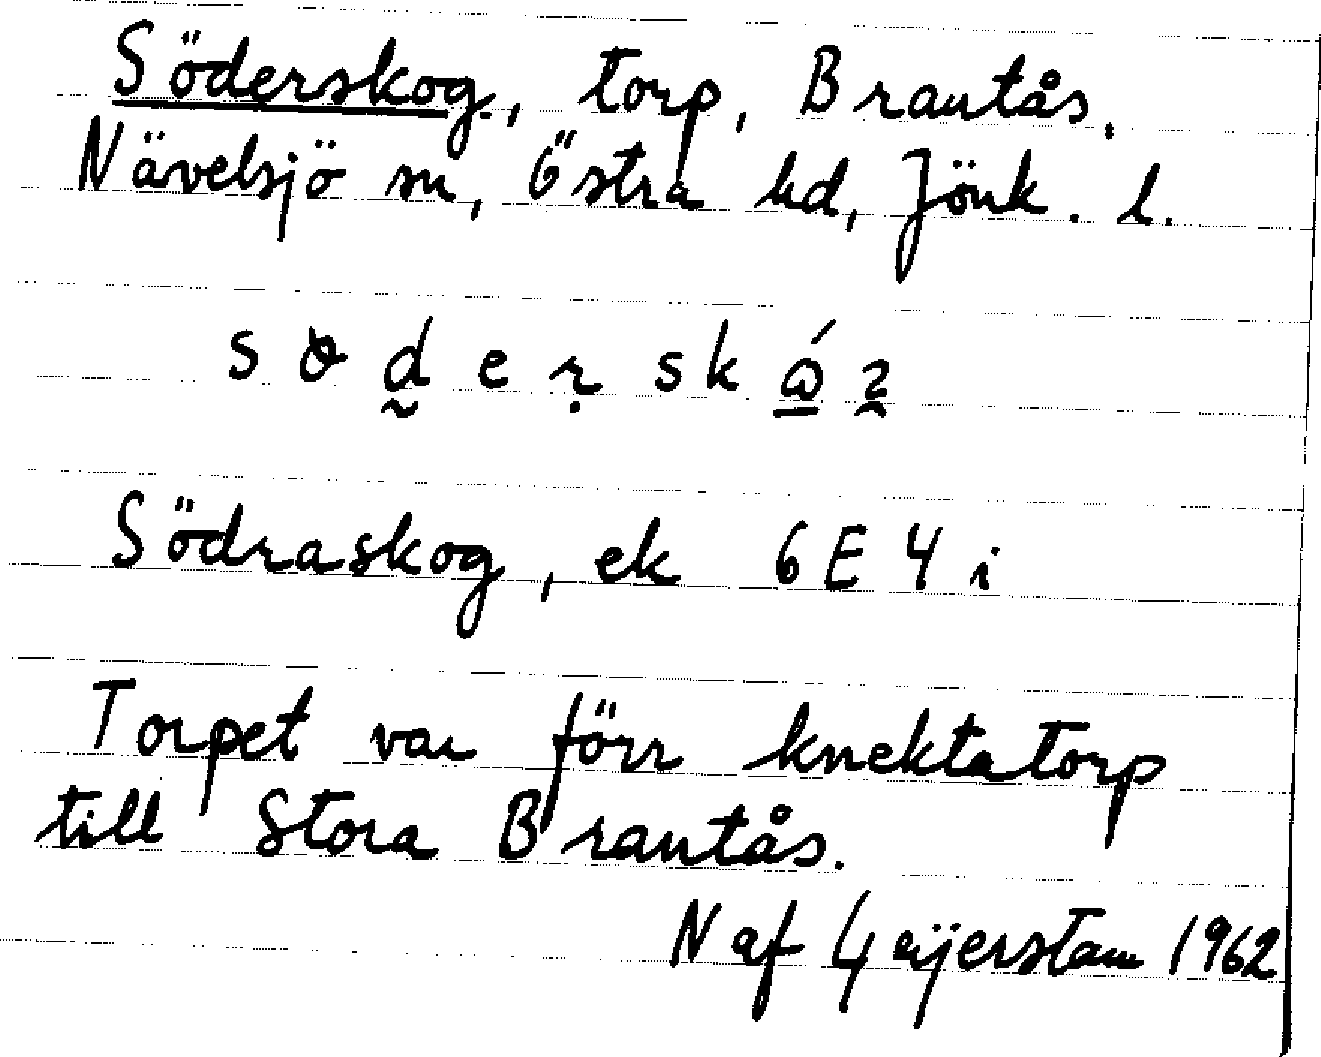 Söderskog, torp, Brantås,
Nävelsjö sn, Östra hd, Jönk. l.
Södraskog, ek 6E4i
Torpet var förr knektatorp
till Stora Brantås.
N af Geijerstam 1962